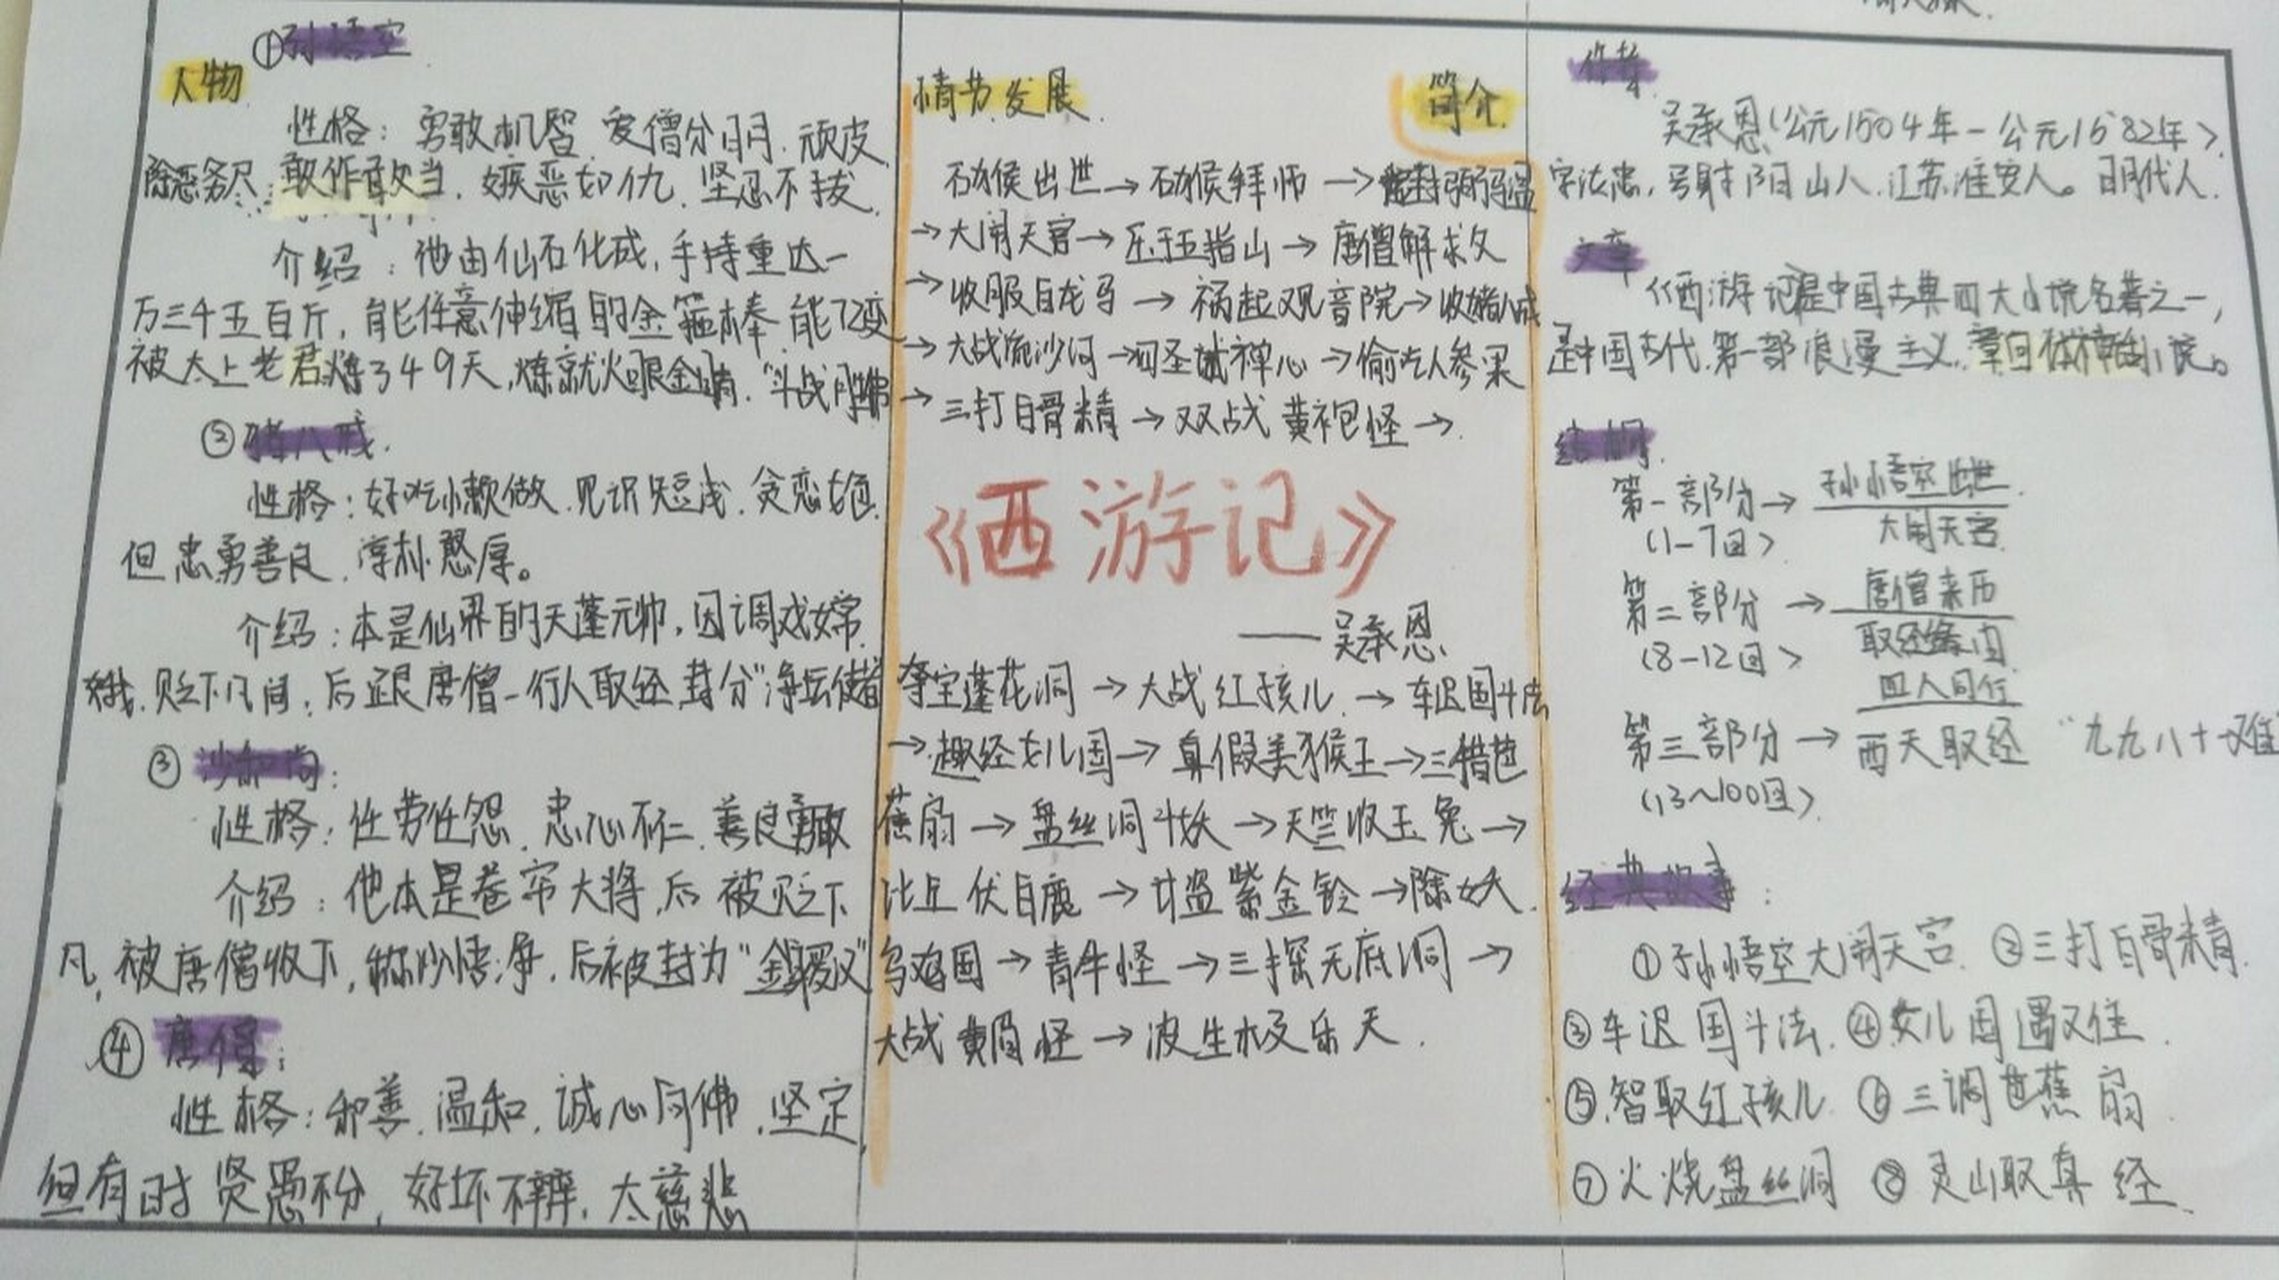 人物
①孙悟空
性格：勇敢机智、爱憎分明、顽皮、
除恶务尽、敢作敢当、嫉恶如仇、坚忍不拔
介绍：他由仙石化成，手持重达一
万三千五百斤，能任意伸缩的金箍棒，能72变
被太上老君炼349天，炼就火眼金睛，“斗战
②猪八戒
性格：好吃懒做、见识短浅、贪恋女色
但忠勇善良、淳朴憨厚。
介绍：本是仙界的天蓬元帅，因调戏嫦
娥，贬下凡间，后跟唐僧一行人取经，封分“净坛使者
③沙和尚：
性格：任劳任怨、忠心不二、善良勇敢
介绍：他本是卷帘大将，后被贬下
凡，被唐僧收下，称沙悟净，后被封为“金
④唐僧：
性格：和善、温和，诚心向佛、坚定，
但有时贤愚不分，好坏不辨，太慈悲
情节发展
简介
石猴出世→石猴拜师→
→大闹天宫→压于五指山→唐僧解救
→收服白龙马→祸起观音院→收猪八戒
→大战流沙河→四圣试禅心→偷吃人参果
→三打白骨精→双战黄袍怪→
《西游记》
——吴承恩
夺宝莲花洞→大战红孩儿→车迟国斗法
→趣经女儿国→真假美猴王→三借芭
蕉扇→盘丝洞斗妖→天竺收玉兔→
比丘伏白鹿→计盗紫金铃→除妖
乌鸡国→青牛怪→三探无底洞→
大战黄眉怪→波生极乐天.
作者
吴承恩（公元1504年-公元1582年）
字汝忠，号射阳山人，江苏淮安人。明代人
文章
《西游记》是中国古典四大小说名著之一，
是中国古代第一部浪漫主义章回体神话小说。
结构
第一部分→孙悟空出世
（1-7回） 大闹天宫
第二部分→唐僧来历
（8-12回） 取经缘由
四人同行
第三部分→西天取经“九九八十一难
（13~100回）
经典故事：
①孙悟空大闹天宫 ②三打白骨精
③车迟国斗法 ④女儿国遇
⑤智取红孩儿 ⑥三调芭蕉扇
⑦火烧盘丝洞 ⑧灵山取真经